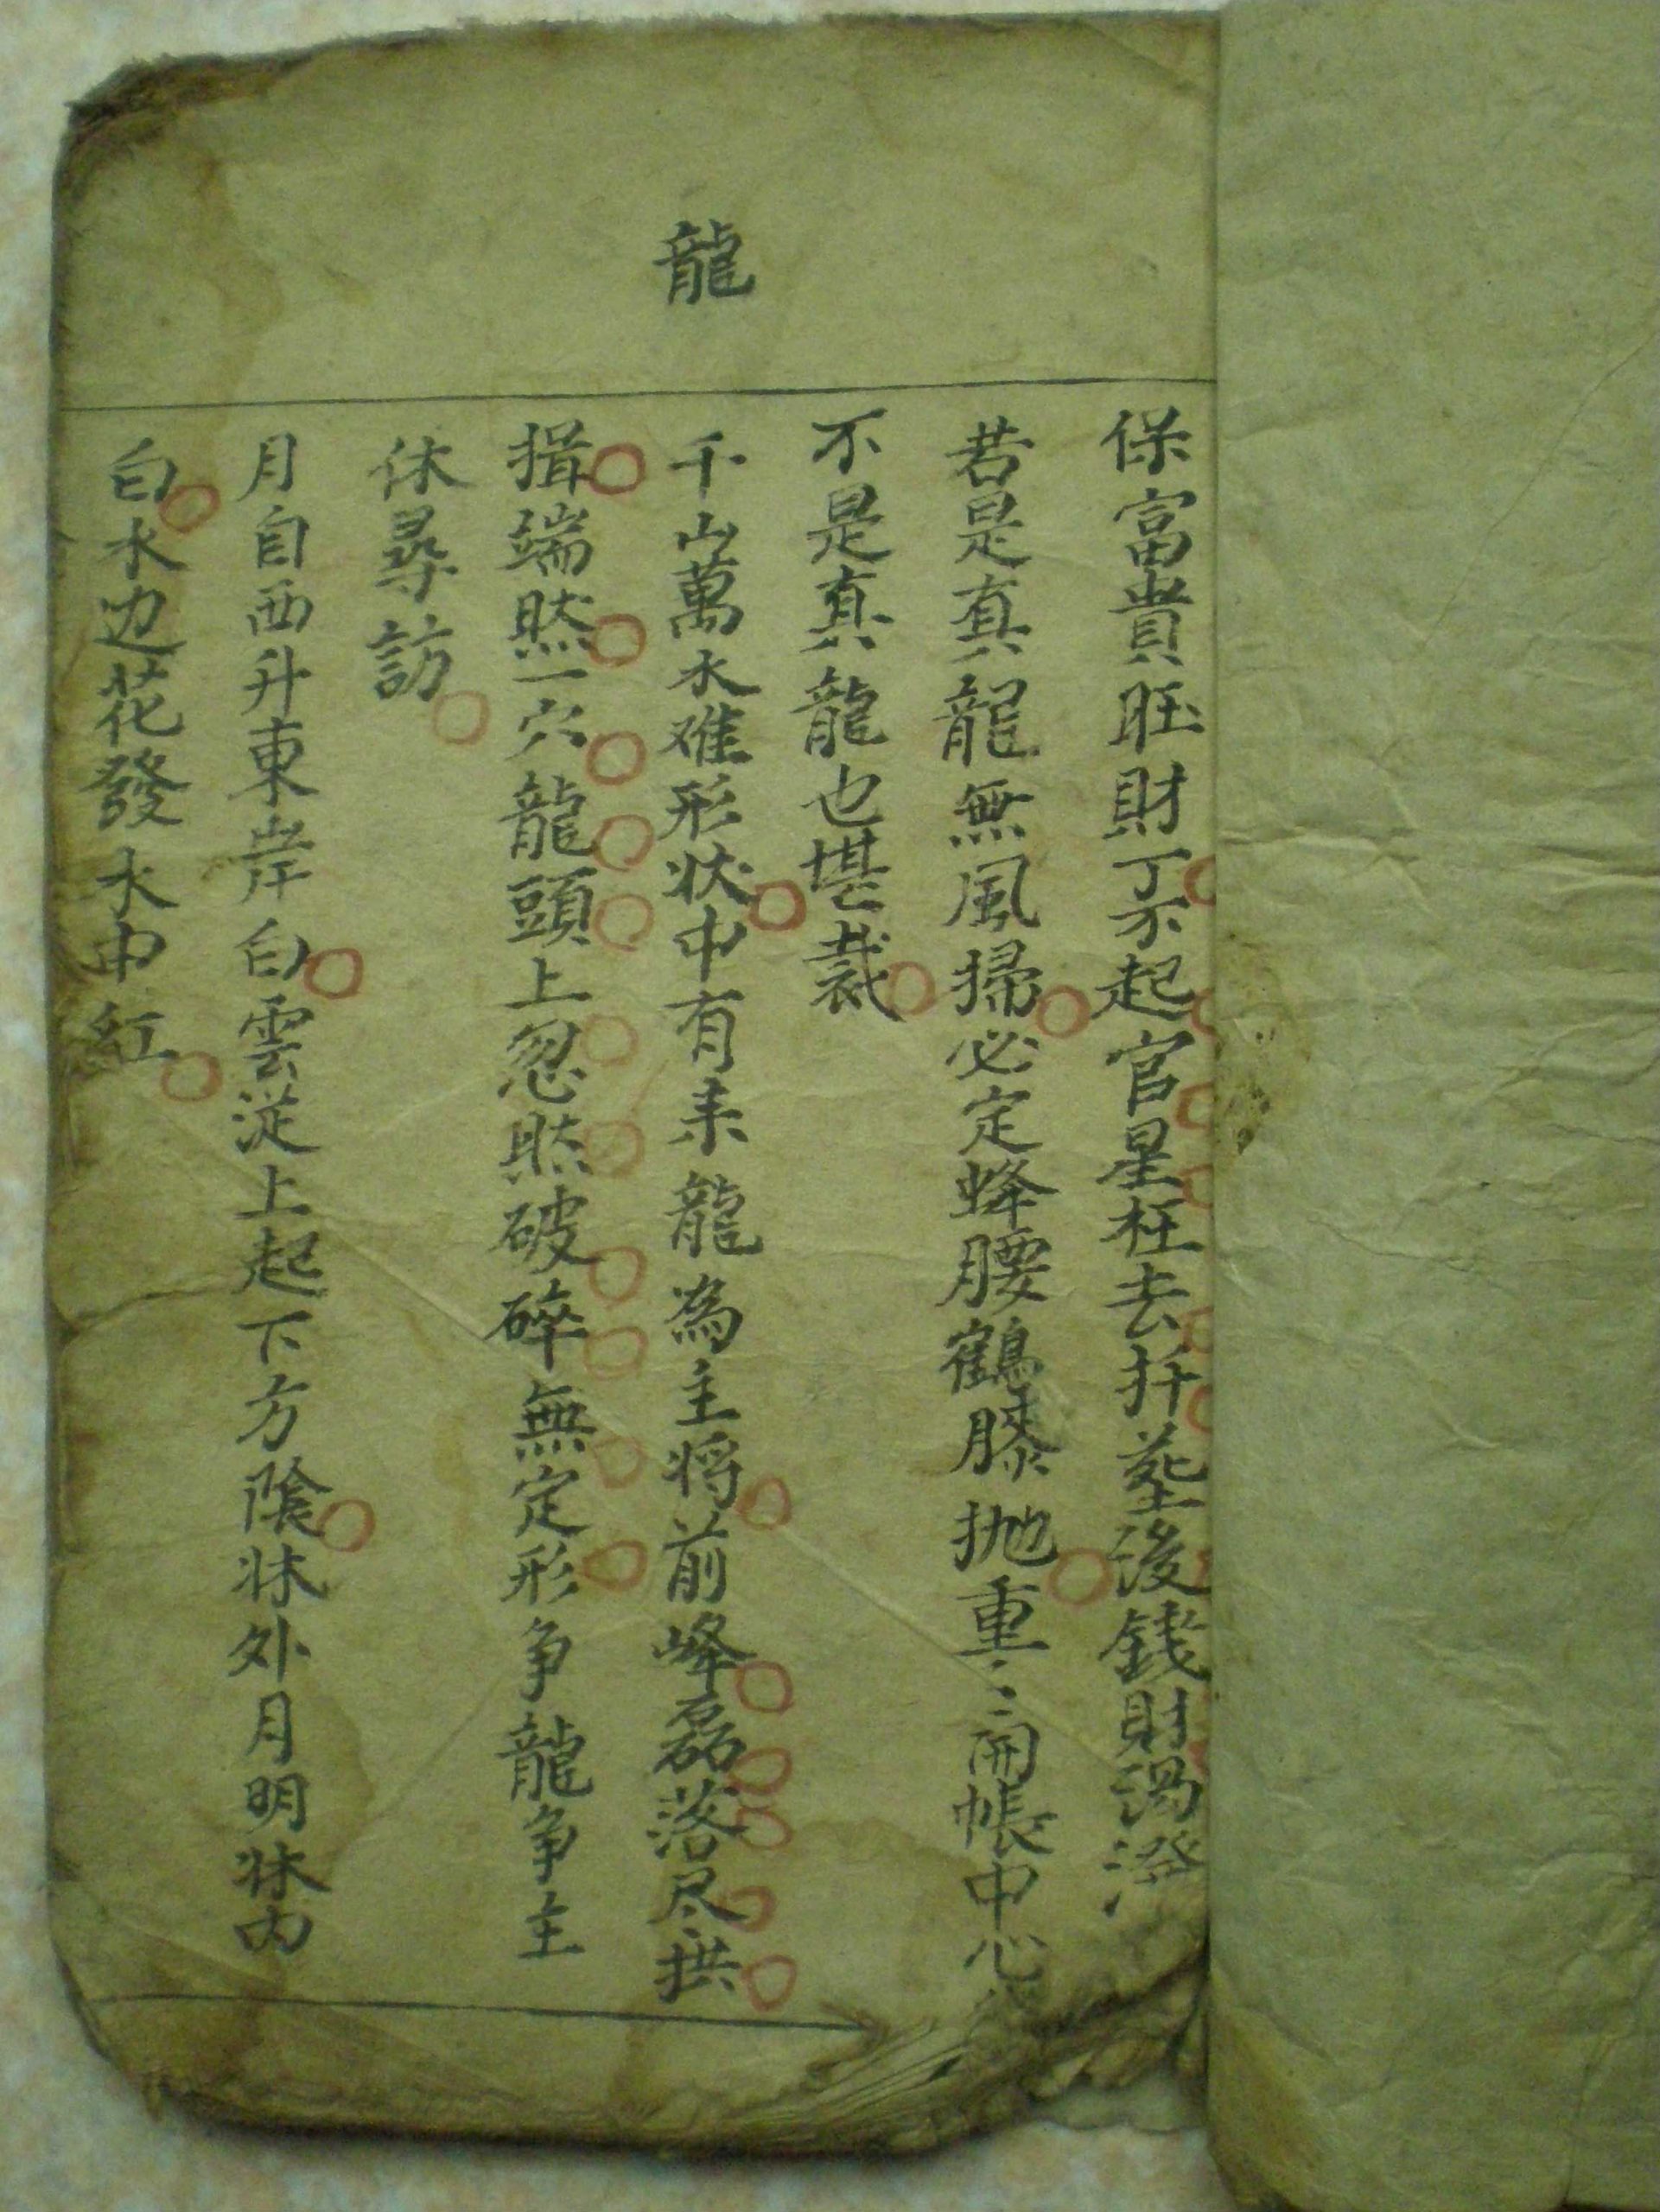 龍
保富貴旺財丁不起官星枉去扦塟後錢財溈澄
若是真龍無風掃必定蜂腰鶴膝抛重〻開帳中心
不是真龍也堪裁
千山萬水难形状中有来龍為主将前峰磊落尽拱
揖端然一穴龍頭上忽然破碎無定形争龍争主
休尋訪
月自西升東岸白雲従上起下方陰牀外月明牀内
白水边花發水中紅